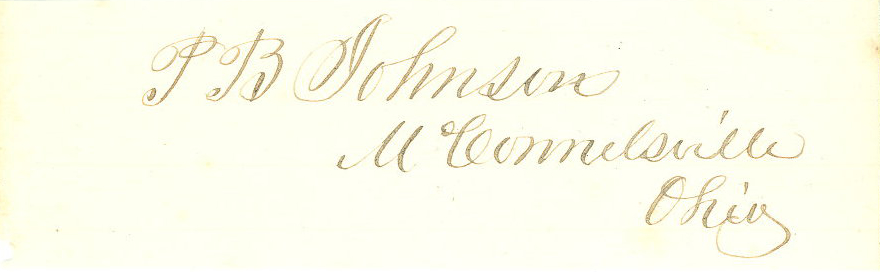 P B Johnson
McConnelsville
Ohio